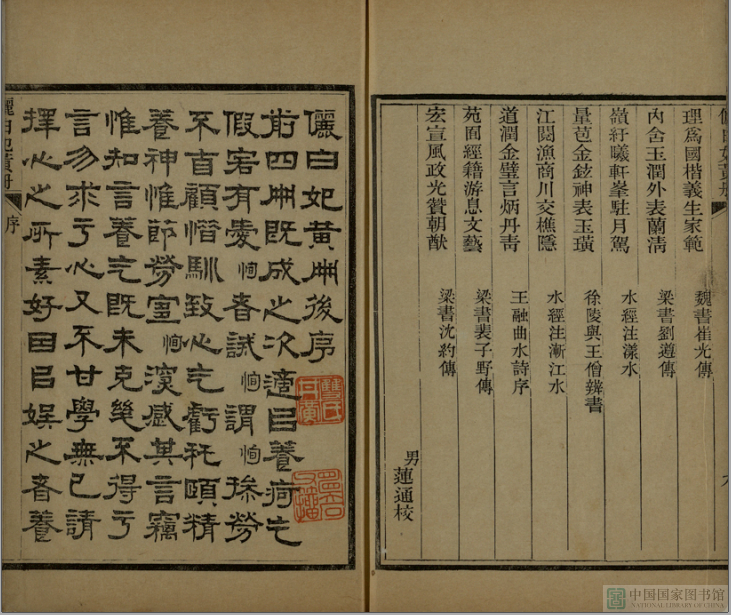 儷白妃黃冊
理爲國楷義生家範 魏書崔光傳
內含玉潤外表蘭清 梁書劉遵傳
嶺紆曦軒峯駐月駕 水經注漾水
量苞金鉉神表玉璜 徐陵與王僧辯書
江閱漁商川交樵隱 水經注漸江水
道潤金璧言炳丹青 王融曲水詩序
苑囿經籍游息文藝 梁書裴子野傳
宏宣風政光贊朝猷 梁書沈約傳
男蓮通校
儷白妃黃冊後序
前四冊既成之次適㠯養疴乞
假客有愛恂者誡恂謂恂操勞
不自顧惜馴致心气虧秏頤精
養神惟節勞宜恂深感其言竊
惟知言養气既未克幾不得亏
言勿求亏心又不甘學無已請
擇心之所素好因㠯娛之者養
儷白妃黃冊 序
中国国家图书馆
NATIONAL LIBRARY OF CHINA